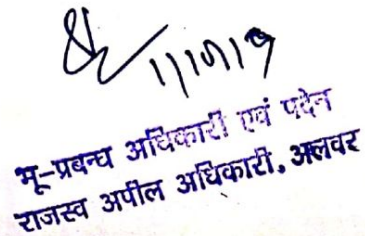 1/10/19
भू-प्रबन्ध अधिकारी एवं पदेन
राजस्व अपील अधिकारी, अलवर